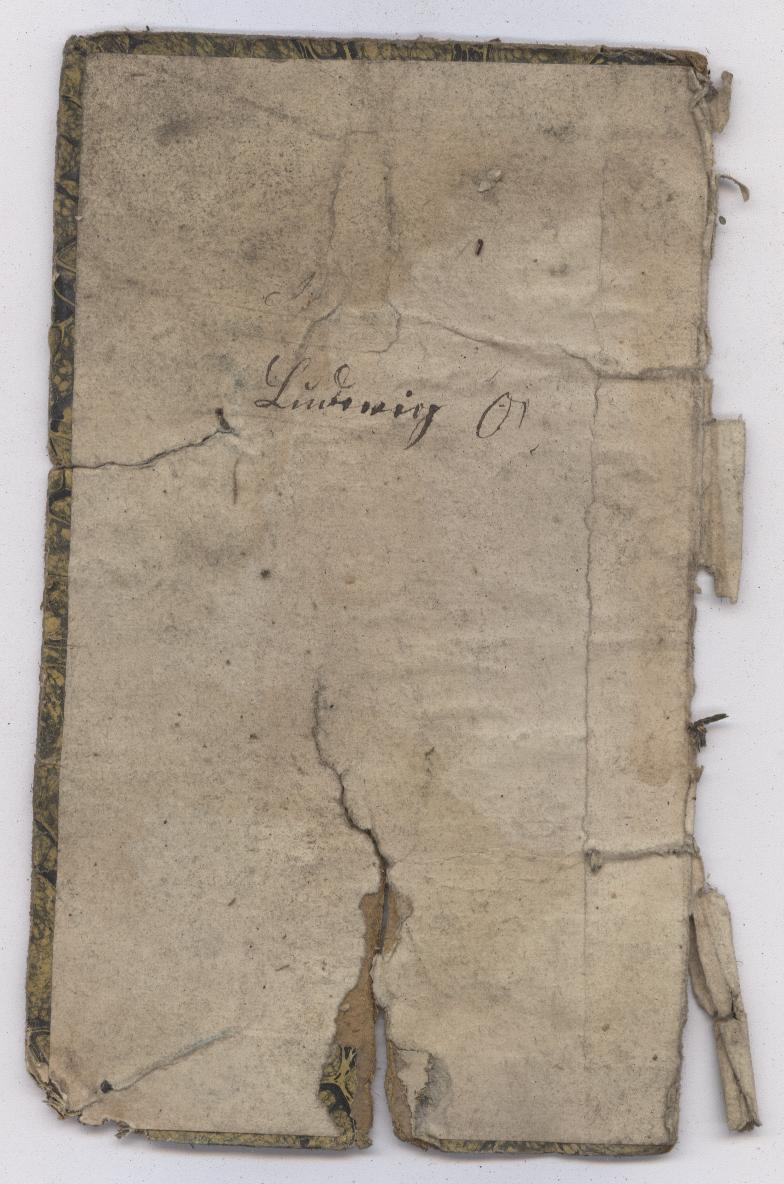 Ludwig O